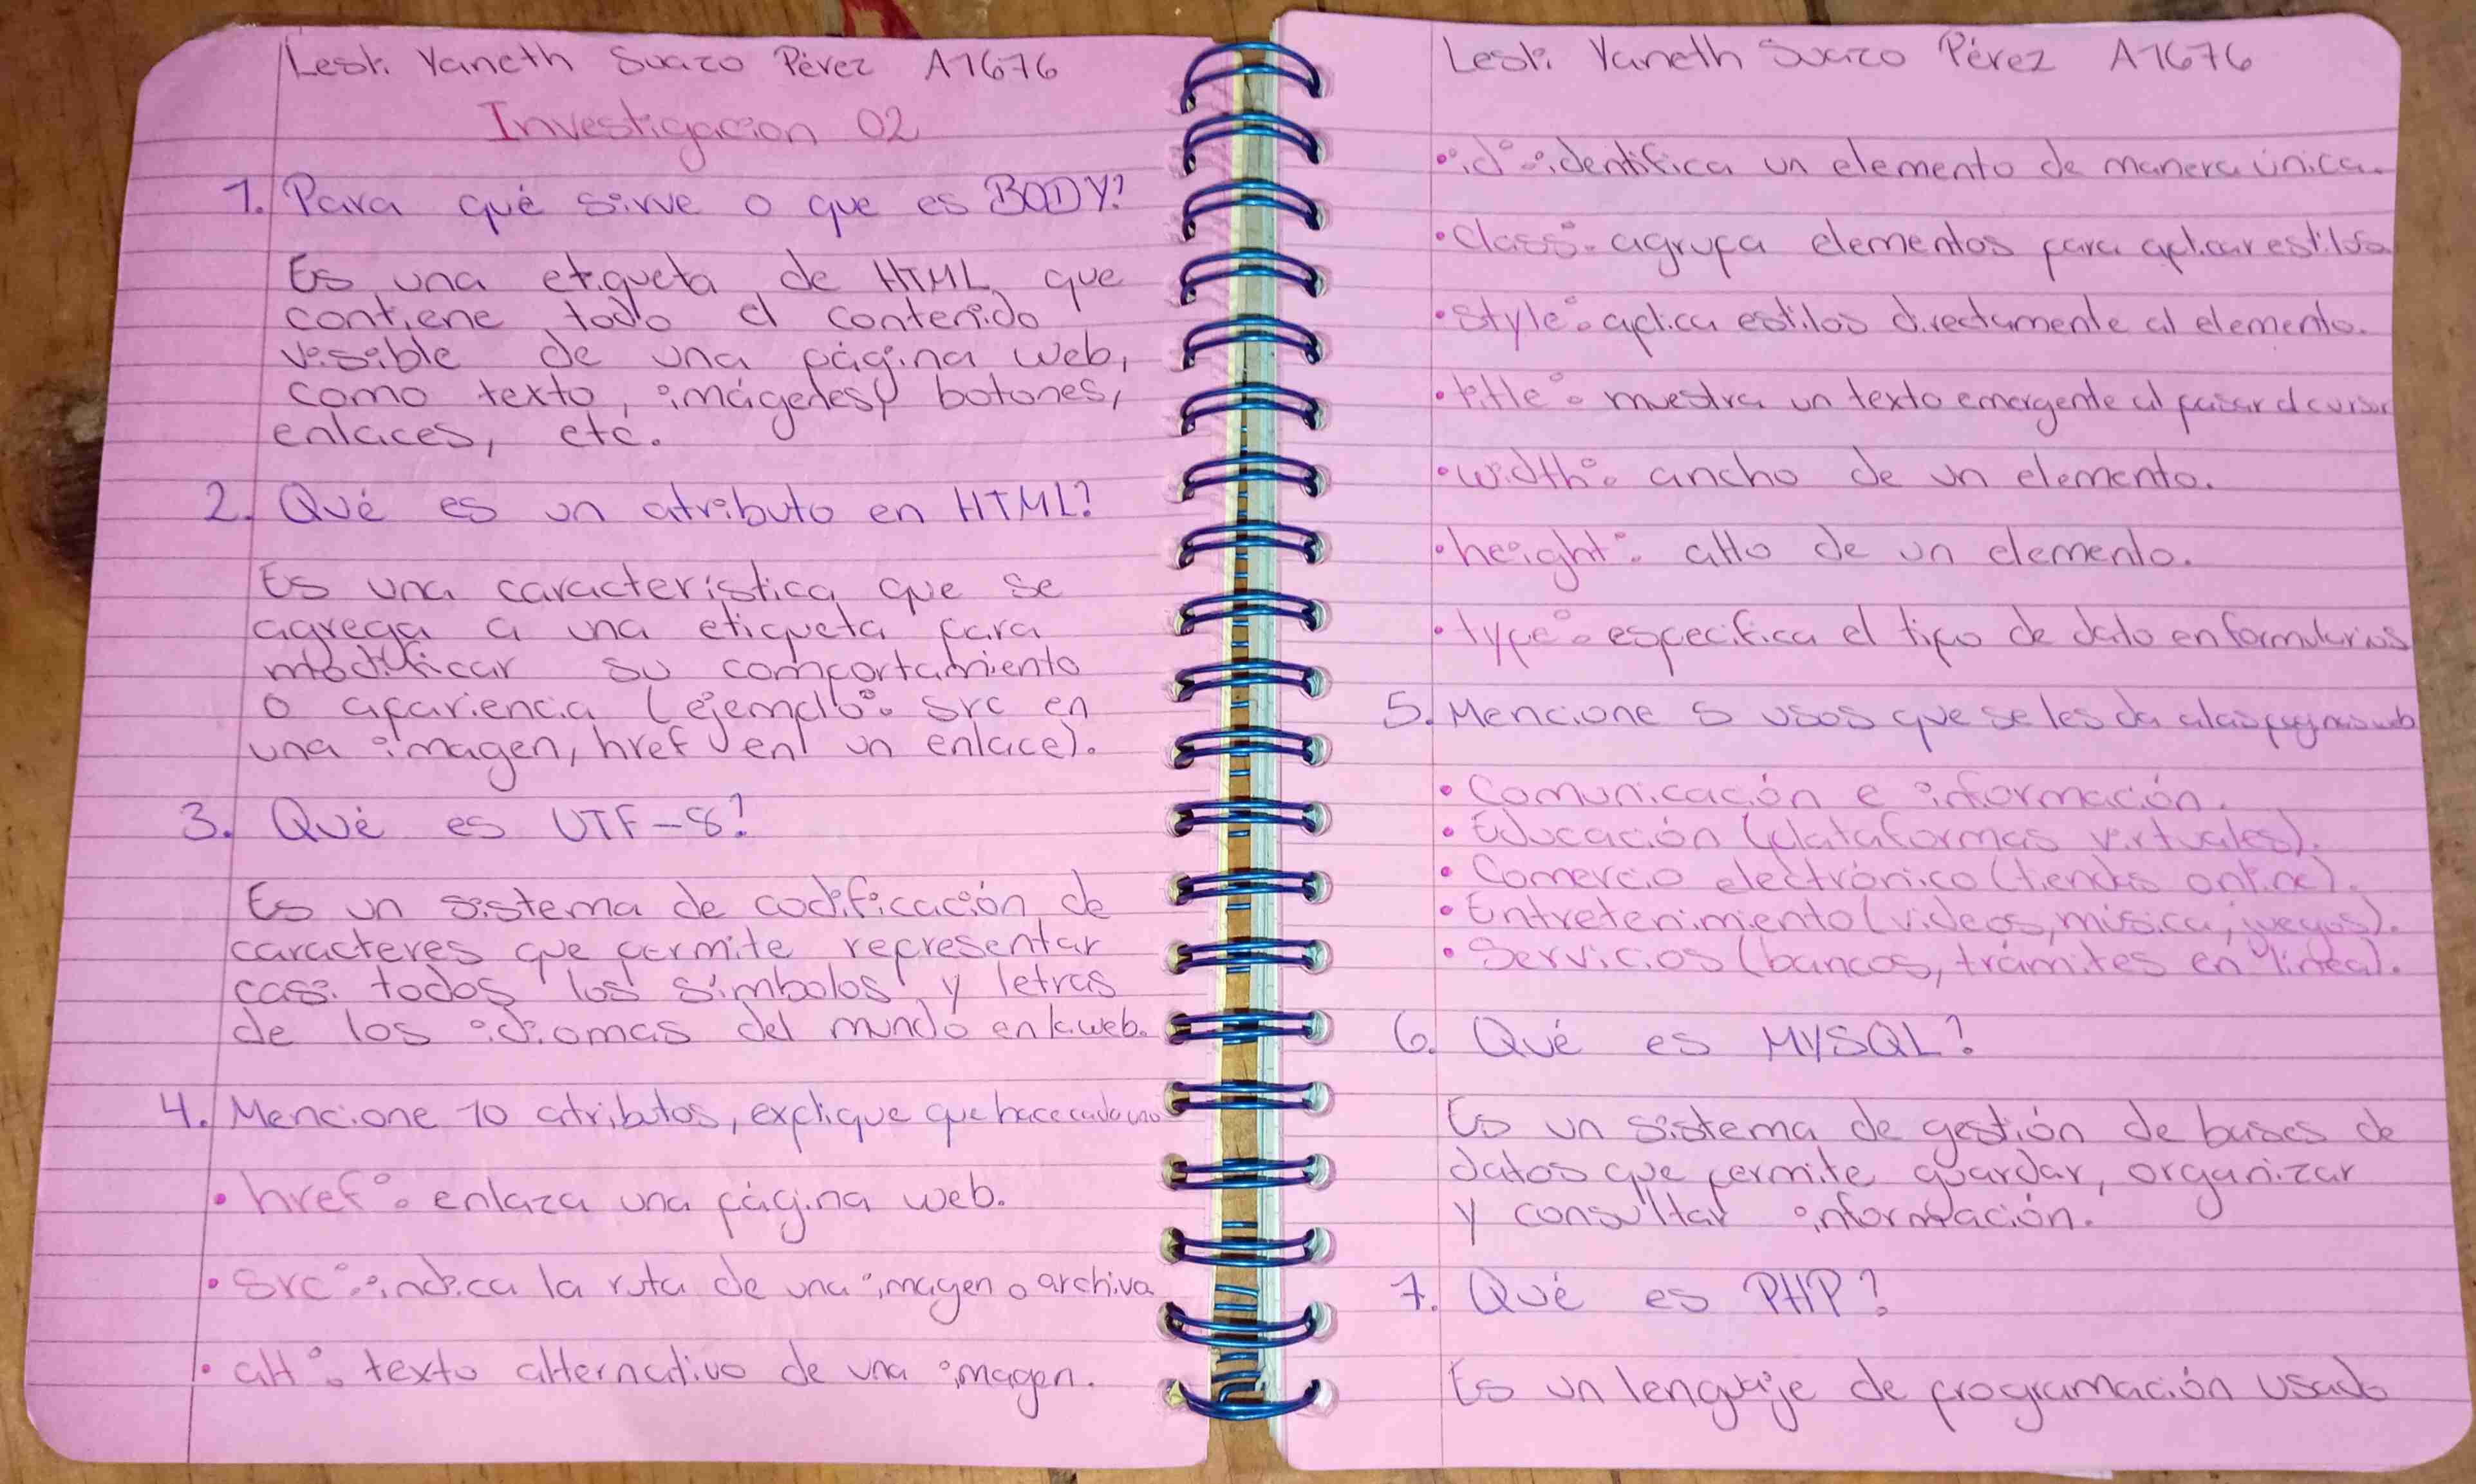 Lesli Yaneth Suazo Pérez A1676
Investigacion 02
1. Para qué sirve o que es BODY?
Es una etiqueta de HTML que
contiene todo el contenido
visible de una página web,
como texto, imágenes, botones,
enlaces, etc.
2. Qué es un atributo en HTML?
Es una caracteristica que se
agrega a una etiqueta para
modificar su comportamiento
o apariencia (ejemplo: src en
una imagen, href en un enlace).
3. Qué es UTF-8?
Es un sistema de codificación de
caracteres que permite representar
casi todos los símbolos y letras
de los idiomas del mundo en la web.
4. Mencione 10 atributos, explique que hace cada uno
• href: enlaza una página web.
• src: indica la ruta de una imagen o archivo
• alt: texto alternativo de una imagen.
Lesli Yaneth Suazo Pérez A1676
• id: identifica un elemento de manera única.
• class: agrupa elementos para aplicar estilos
• style: aplica estilos directamente al elemento.
• title: muestra un texto emergente al pasar el cursor
• width: ancho de un elemento.
• height: alto de un elemento.
• type: especifica el tipo de dato en formularios
5. Mencione 5 usos que se les da a las paginas web
• Comunicación e información.
• Educación (plataformas virtuales).
• Comercio electrónico (tiendas online).
• Entretenimiento (videos, música, juegos).
• Servicios (bancos, trámites en línea).
6. Qué es MYSQL?
Es un sistema de gestión de bases de
datos que permite guardar, organizar
y consultar información.
7. Qué es PHP?
Es un lenguaje de programación usado